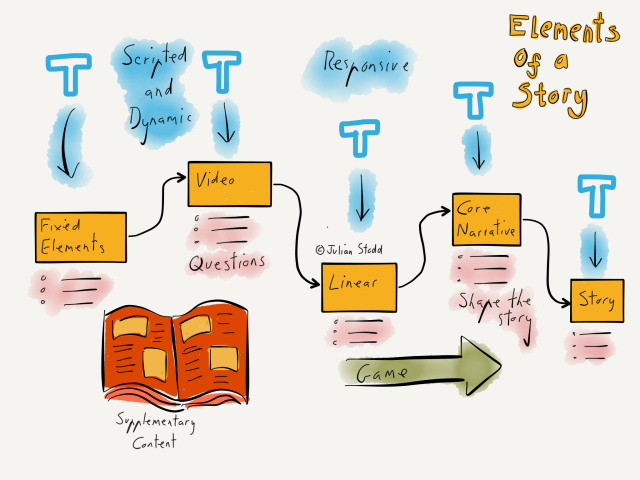 Elements
Of a
Story
T
Scripted
and
Dynamic
T
Responsive
T
T
T
Fixed
Elements
Video
Questions
© Julian Stodd
Linear
Core
Narrative
Shape the
story
Story
Game
Supplementary
Content